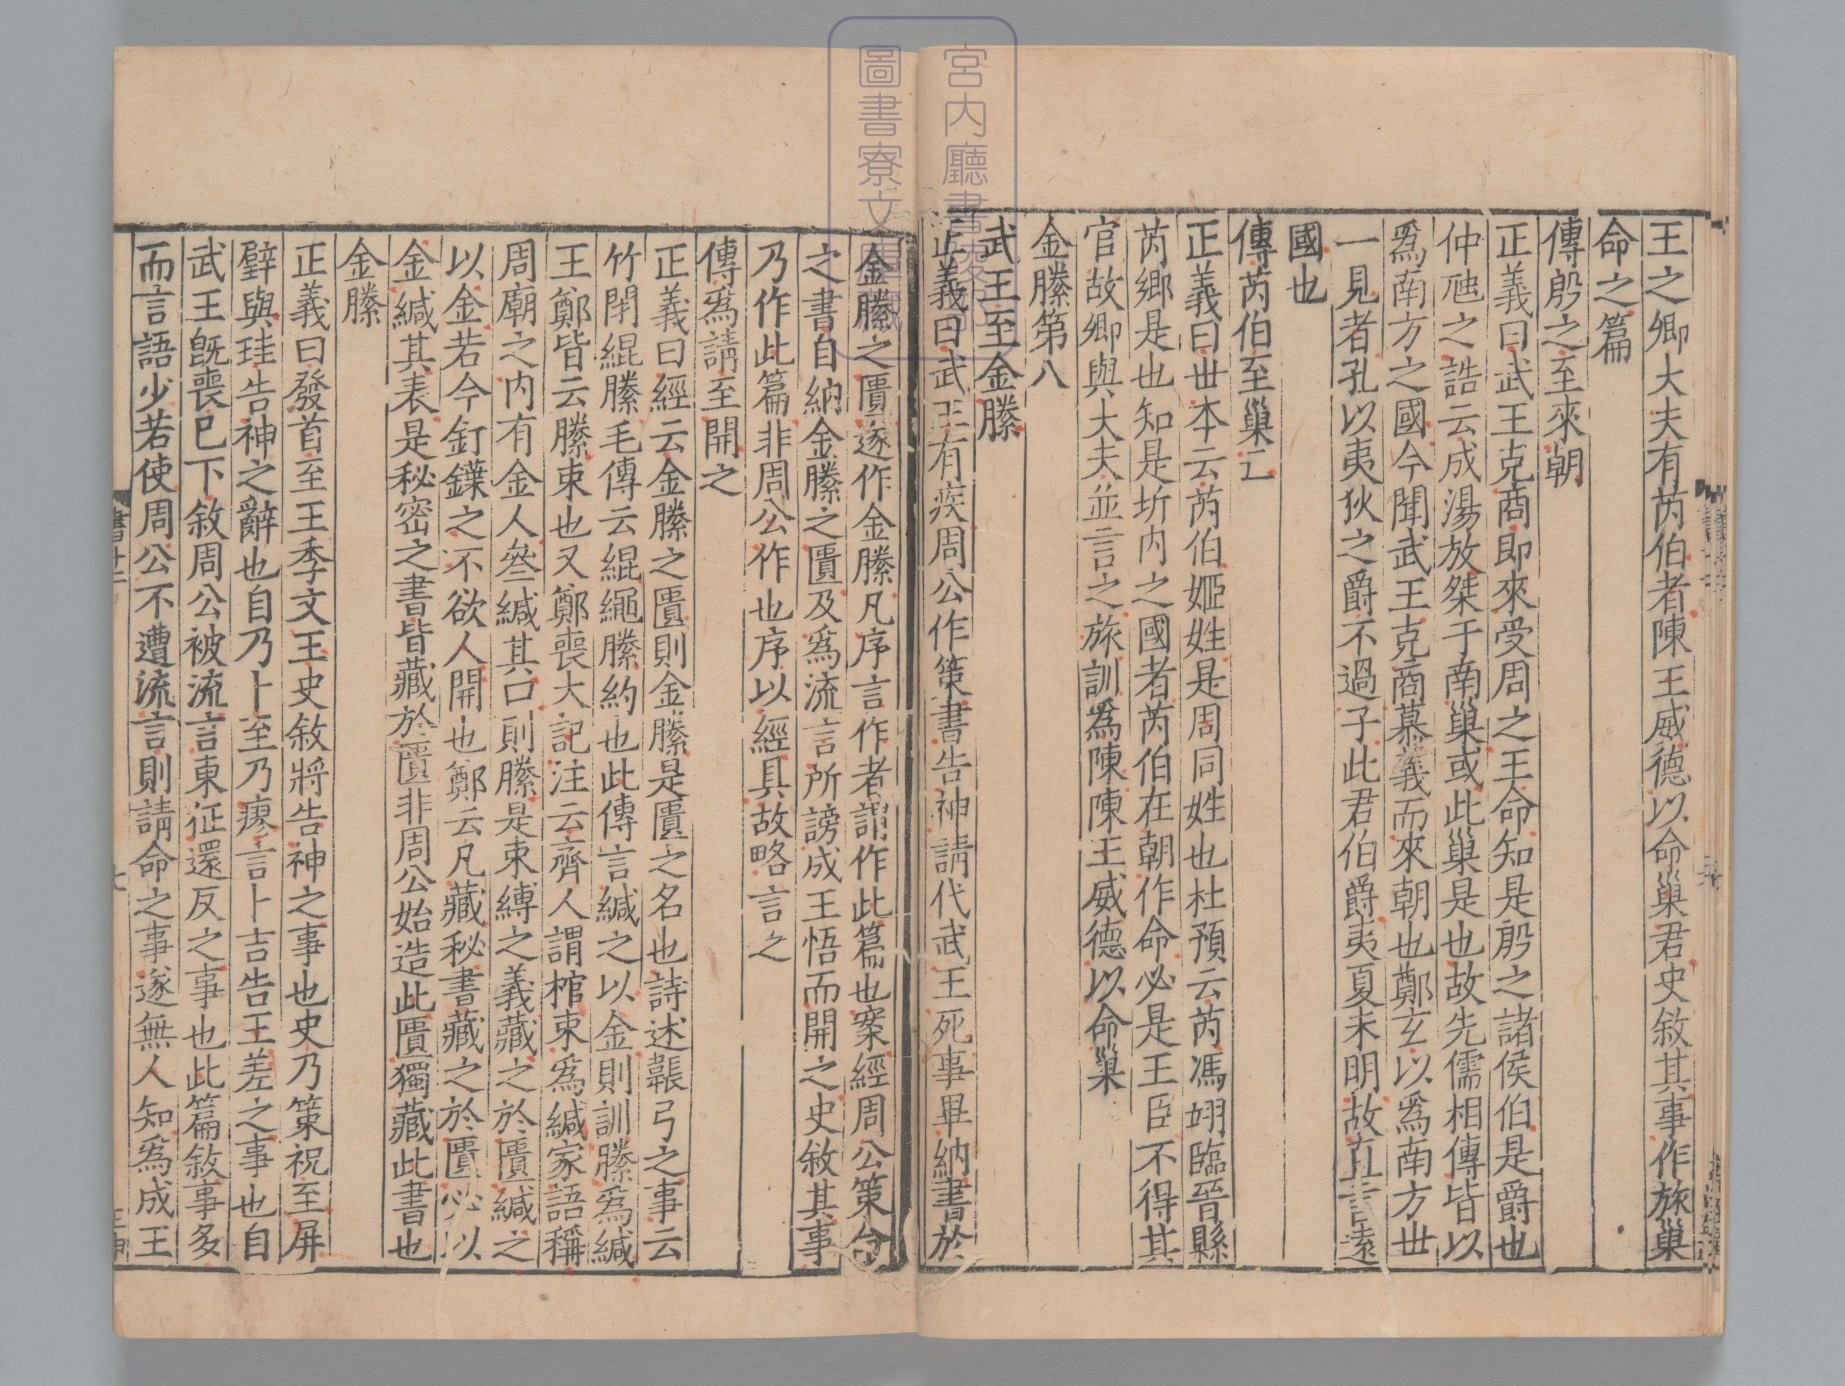 王之卿大夫有芮伯者陳王威德以命巢君史敘其事作旅巢
命之篇
傳殷之至來朝
正義曰武王克商即來受周之王命知是殷之諸侯伯是爵也
仲虺之誥云成湯放桀于南巢或此巢是也故先儒相傳皆以
爲南方之國今聞武王克商慕義而來朝也鄭玄以爲南方世
一見者孔以夷狄之爵不過子此君伯爵夷夏未明故直言遠
國也
傳芮伯至巢亡
正義曰世本云芮伯姬姓是周同姓也杜預云芮馮翊臨晉縣
芮鄉是也知是圻內之國者芮伯在朝作命必是王臣不得其
官故卿與大夫並言之旅訓爲陳陳王威德以命巢
金縢第八
武王至金縢
正義曰武王有疾周公作策書告神請代武王死事畢納書於
金縢之匱遂作金縢凡序言作者謂作此篇也案經周公策命
之書自納金縢之匱及爲流言所謗成王悟而開之史敘其事
乃作此篇非周公作也序以經具故略言之
傳爲請至開之
正義曰經云金縢之匱則金縢是匱之名也詩述韔弓之事云
竹閉緄縢毛傳云緄繩縢約也此傳言緘之以金則訓縢爲緘
王鄭皆云縢束也又鄭喪大記注云齊人謂棺束爲緘家語稱
周廟之內有金人參緘其口則縢是束縛之義藏之於匱緘之
以金若今釘鍱之不欲人開也鄭云凡藏秘書藏之於匱必以
金緘其表是秘密之書皆藏於匱非周公始造此匱獨藏此書也
金縢
正義曰發首至王季文王史敘將告神之事也史乃策祝至屏
璧與珪告神之辭也自乃卜至乃瘳言卜吉告王差之事也自
武王旣喪已下敘周公被流言東征還反之事也此篇敘事多
而言語少若使周公不遭流言則請命之事遂無人知爲成王
宮內廳書陵
圖書寮文庫